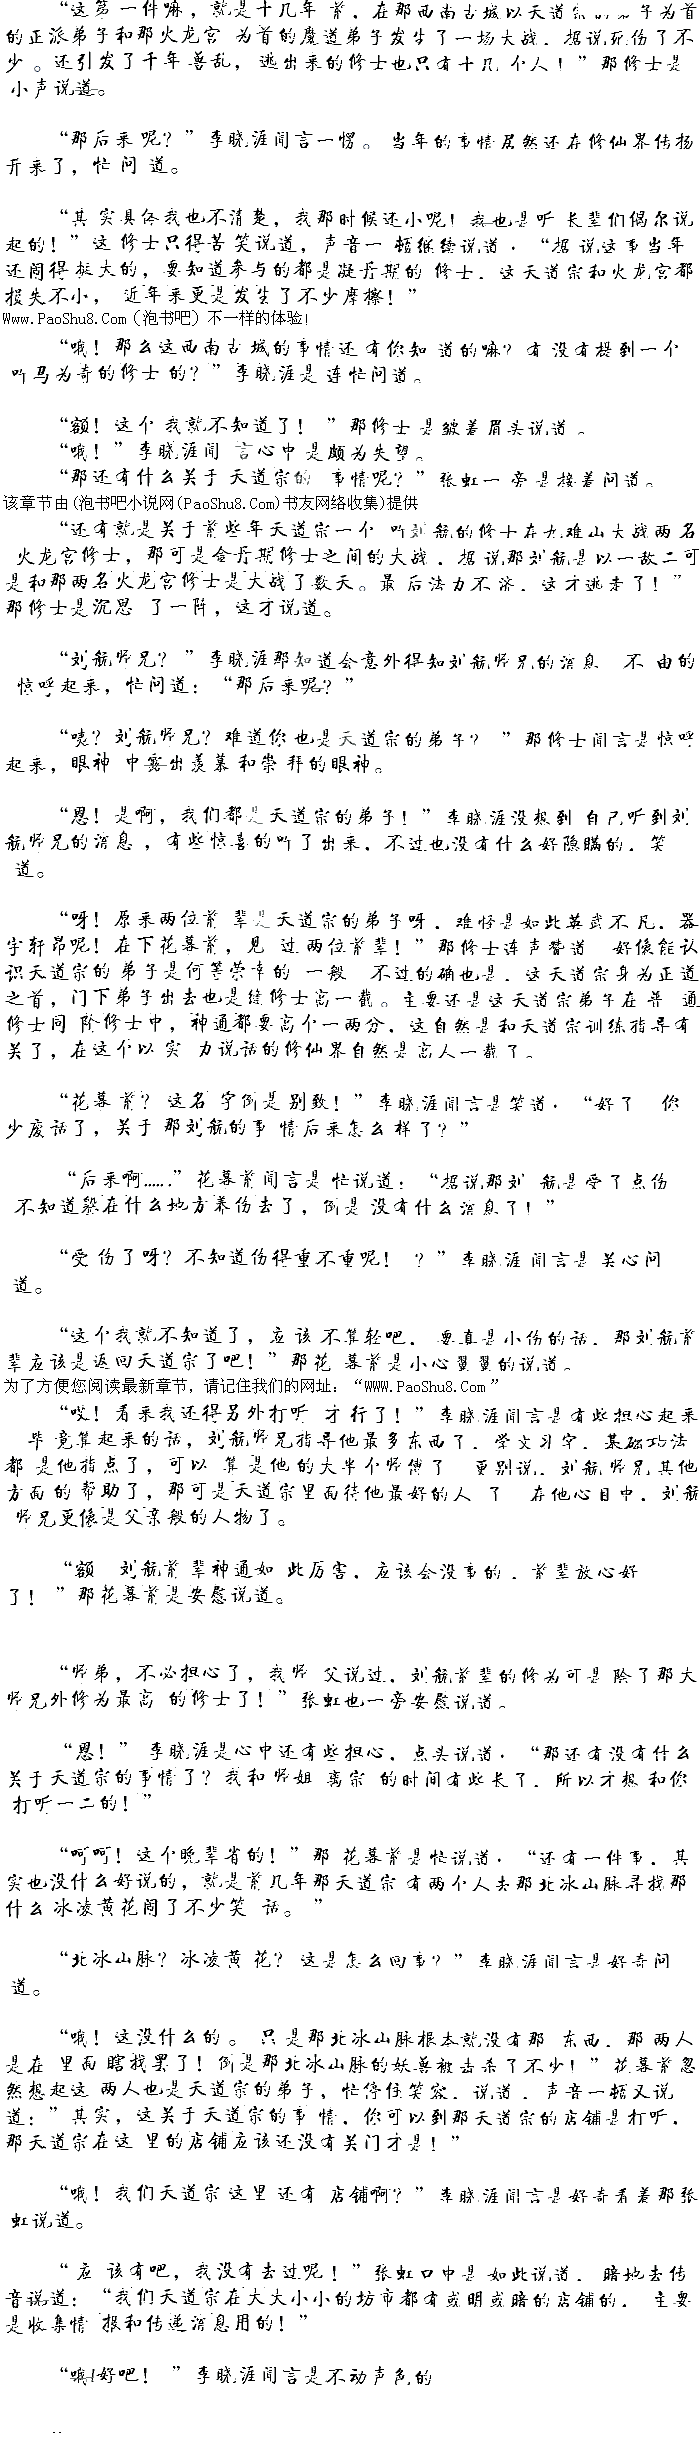 “这第一件嘛，就是十几年前，在那西南古城以天道宗的弟子为首
的正派弟子和那火龙宫 为首的魔道弟子发生了一场大战．据说死伤了不
少 。还引发了千年兽乱， 逃出来的修士也只有十几 个人！”那修士是
小声说道。
“那后来 呢？”李晓涯闻言一愣。 当年的事情居然还在修仙界传扬
开来了，忙 问 道。
“其 实具体我也不清楚，我那时候还小呢！我也是听 长辈们偶尔说
起的！”这 修士只得苦 笑说道，声音一 顿继续说道．“据 说这事当年
还闹得挺大的，要知道参与的都是凝丹期的 修士．这天道宗和火龙宫都
损失不小， 近年来更是发生了不少摩擦！”
Www.PaoShu8.Com（泡书吧）不一样的体验！
“哦！那么这西南古 城的事情还有你知 道的嘛？有 没有提到一个
叫马为奇的修士 的？”李晓涯是 连忙问道。
“额！这个 我就不知道了！ ”那修士 是皱着眉头说道 。
“哦！”李晓涯闻 言心中 是颇为失望。
“那还有什么关于 天道宗的 事情呢？”张虹一 旁是接着问道。
该章节由(泡书吧小说网(PaoShu8.Com)书友网络收集)提供
“还有就是关于前些年天道宗一个 叫刘航的修士在九难山大战两名
火龙宫修士，那可是金丹期修士之间的大战．据 说那刘航是以一敌二可
是和那两名火龙宫修士是大战了数天。最 后法力不济．这才逃走了！”
那修士是沉思 了一阵，这才说道。
“刘航师兄？ ”李晓涯那知道会意外得知刘航师兄的消息 不 由的
惊呼起来，忙问道：“那后来呢？”
“咦？刘航师兄？难道你也是天道宗的弟子？ ”那修士闻言是惊呼
起来，眼神 中露出羡慕 和崇 拜的眼神。
“恩！是啊，我们都是天道宗的弟子！”李晓涯没想到 自己听到刘
航师兄的消息 ，有些惊喜的听了出来．不过也没有什么好隐瞒的．笑
道。
“呀！原来两位前 辈是天道宗的弟子呀．难怪是如此英武不凡．器
宇轩昂呢！在下花暮前，见 过 两位前辈！”那修士连声赞道 好像能认
识天道宗的 弟子是何等荣幸的 一般 不过的确也是．这天道宗身为正道
之首，门下弟子出去也是绕修士高一截。主要还是这天道宗弟子在 普 通
修士同 阶修士中，神通都要高个一两分．这自然是和天道宗训练指导有
关了，在这个以 实 力说话的修仙界自然是高人一截 了。
“花暮 前？这名 字倒是 别致！”李晓涯闻言是笑道．“好了 你
少废话了，关于 那刘航的事 情后来怎么样了？”
“后来啊……”花暮前闻言是 忙说道：“据说那刘 航是受了点伤
不知道躲在什么地方养伤去了，倒是 没有什么消息了！”
“受 伤了呀？不知道伤得重不重呢！ ？”李晓涯 闻言是 关心问
道。
“这个我就不知道了，应 该 不算轻吧． 要真是小伤的话．那刘航前
辈应该是返回天道宗了吧！”那花 暮前是小心翼翼的说道。
为了方便您阅读最新章节，请记住我们的网址：“WWW.PaoShu8.Com ”
“哎！看来我还得另外打听 才 行了！”李晓涯闻言是有些担心起来
毕 竟算起来的话，刘航师兄指导他最多东西了．学文习字．基础功法
都 是他指点了，可以 算 是他 的大半个师傅了 更别说．刘航师兄 其他
方面 的 帮助了，那可是天道宗里面待他最好的人 了 在他心目中．刘航
师兄更像是父亲般的人物了。
“额 刘航前 辈神通如 此厉害．应该会没事的．前辈放心好
了！ ”那花暮前是安慰说道。
“师弟，不必担心了，我师 父说过．刘航前辈的修为可是 除了那大
师兄外修为最高 的修士了！”张虹也一旁安慰说道。
“恩！” 李晓涯是心中还有些担心．点头说道．“那还有没有什么
关于天道宗的事情了？我和 师姐 离宗 的时间有些长了．所以才想 和你
打听一二的！”
“呵呵！这个晚辈省的！”那 花暮前是忙说道．“还有一件事．其
实也没什么好说的，就是前几年那天道宗 有两个人去那北冰山脉寻找那
什么 冰凌黄花闹了不少笑 话。”
“北冰山脉？冰凌黄 花？ 这是怎么回事？”李晓涯闻言是好奇问
道。
“哦！这没什么的 。 只是那北冰山脉根本就没有那 东西．那 两人
是在 里面 瞎找罢了！倒是那北冰山脉的妖兽被击杀了不少！”花暮前忽
然想起这 两人也是天道宗的弟子，忙停住笑容．说道．声音一顿又说
道：”其实，这关于天道宗的事 情．你可以到那天道宗的店铺是打听．
那天道宗在这 里的店铺应该还没有关门才是！”
“哦！我们天道宗 这里 还有 店铺啊？”李晓涯闻言是好奇看着那张
虹说道。
“应 该有吧，我没有去过呢！”张虹口中是 如此说道．暗地去传
音说道：“我们天道宗在大大小小的坊市都有或明或暗的店铺的． 主要
是收集情 报和传递消息用的！”
“哦！好吧！ ”李晓涯闻言是不动声色的
..